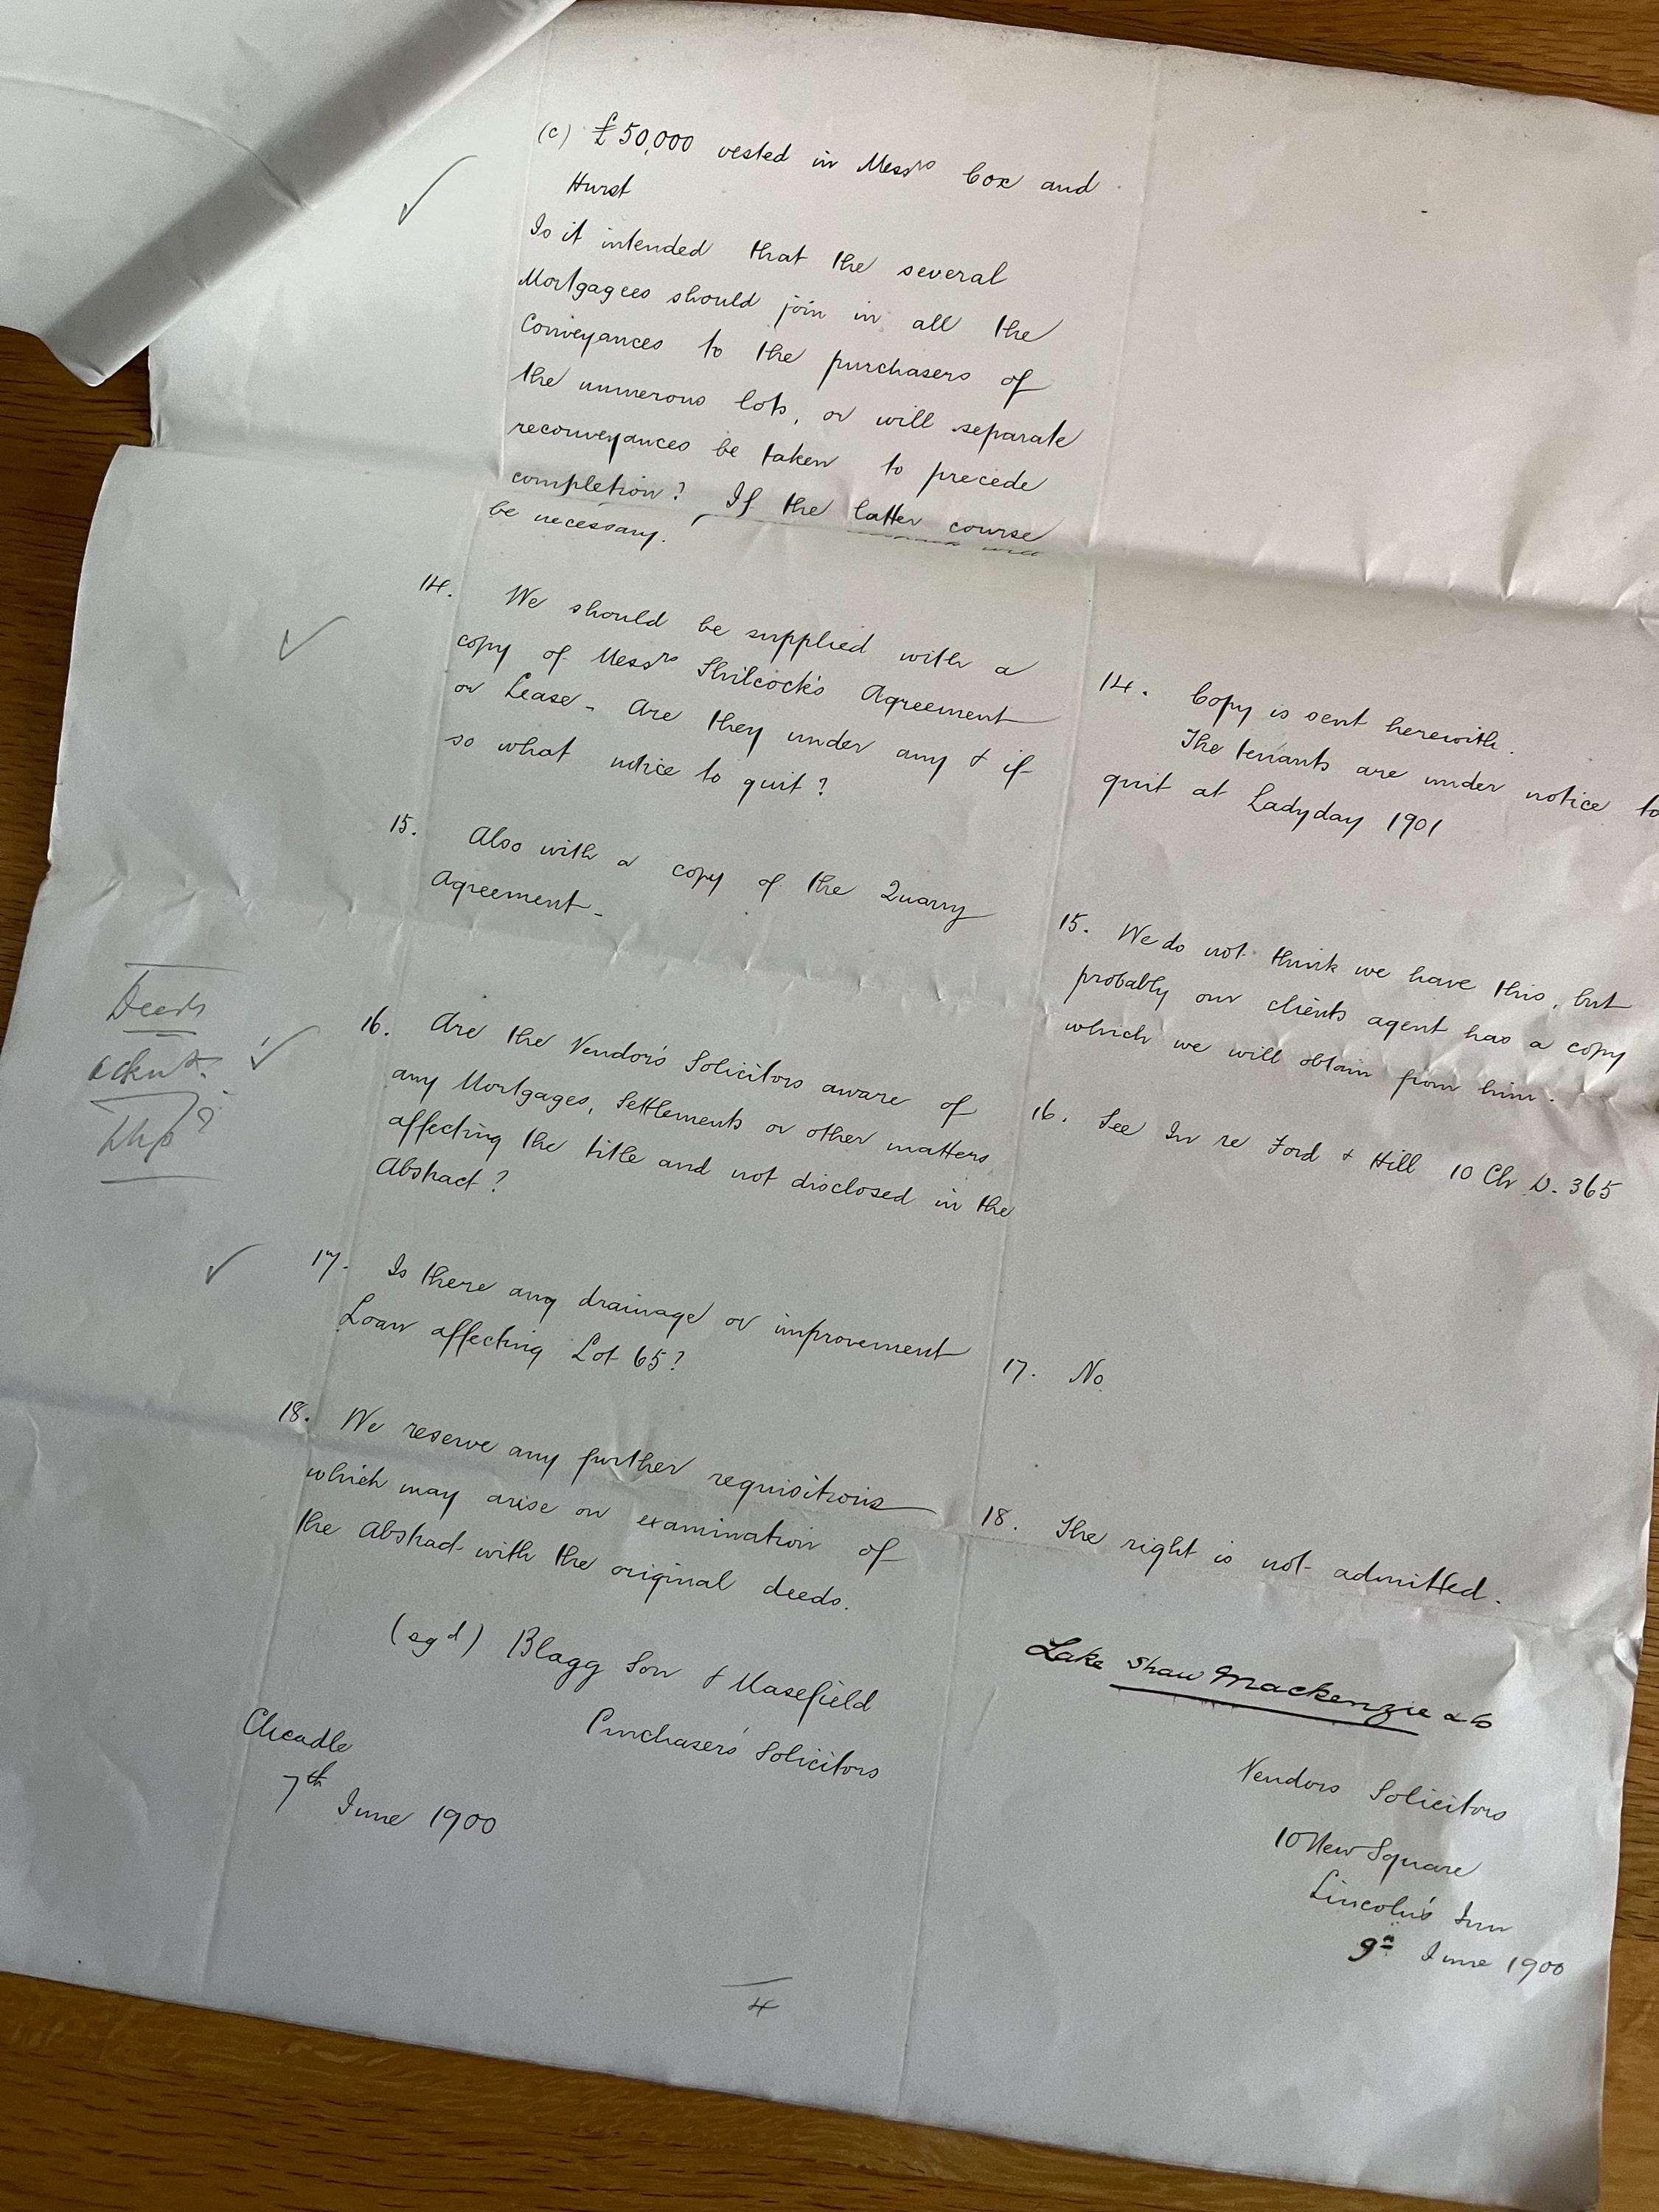 (c) £50,000 vested in Messrs Cox and
Hurst
Is it intended that the several
Mortgagees should join in all the
Conveyances to the purchasers of
the numerous lots, or will separate
reconveyances be taken to precede
completion? If the latter course
be necessary.
14. We should be supplied with a
copy of Messrs Shilcock's Agreement
or Lease - Are they under any & if
so what notice to quit?
14. Copy is sent herewith.
The tenants are under notice to
quit at Ladyday 1901
15. Also with a copy of the Quarry
Agreement -
15. We do not think we have this, but
probably our clients agent has a copy
which we will obtain from him.
Deeds
16. Are the Vendor's Solicitors aware of
any Mortgages, Settlements or other matters
affecting the title and not disclosed in the
Abstract?
16. See In re Ford & Hill 10 Ch D. 365
17. Is there any drainage or improvement
Loan affecting Lot 65?
17. No
18. We reserve any further requisitions
which may arise on examination of
the Abstract with the original deeds.
18. The right is not admitted.
(sgd) Blagg Son & Masefield
Purchasers' Solicitors
Cheadle
7th June 1900
Lake Shaw Mackenzie & Co
Vendors Solicitors
10 New Square
Lincoln's Inn
9th June 1900
4